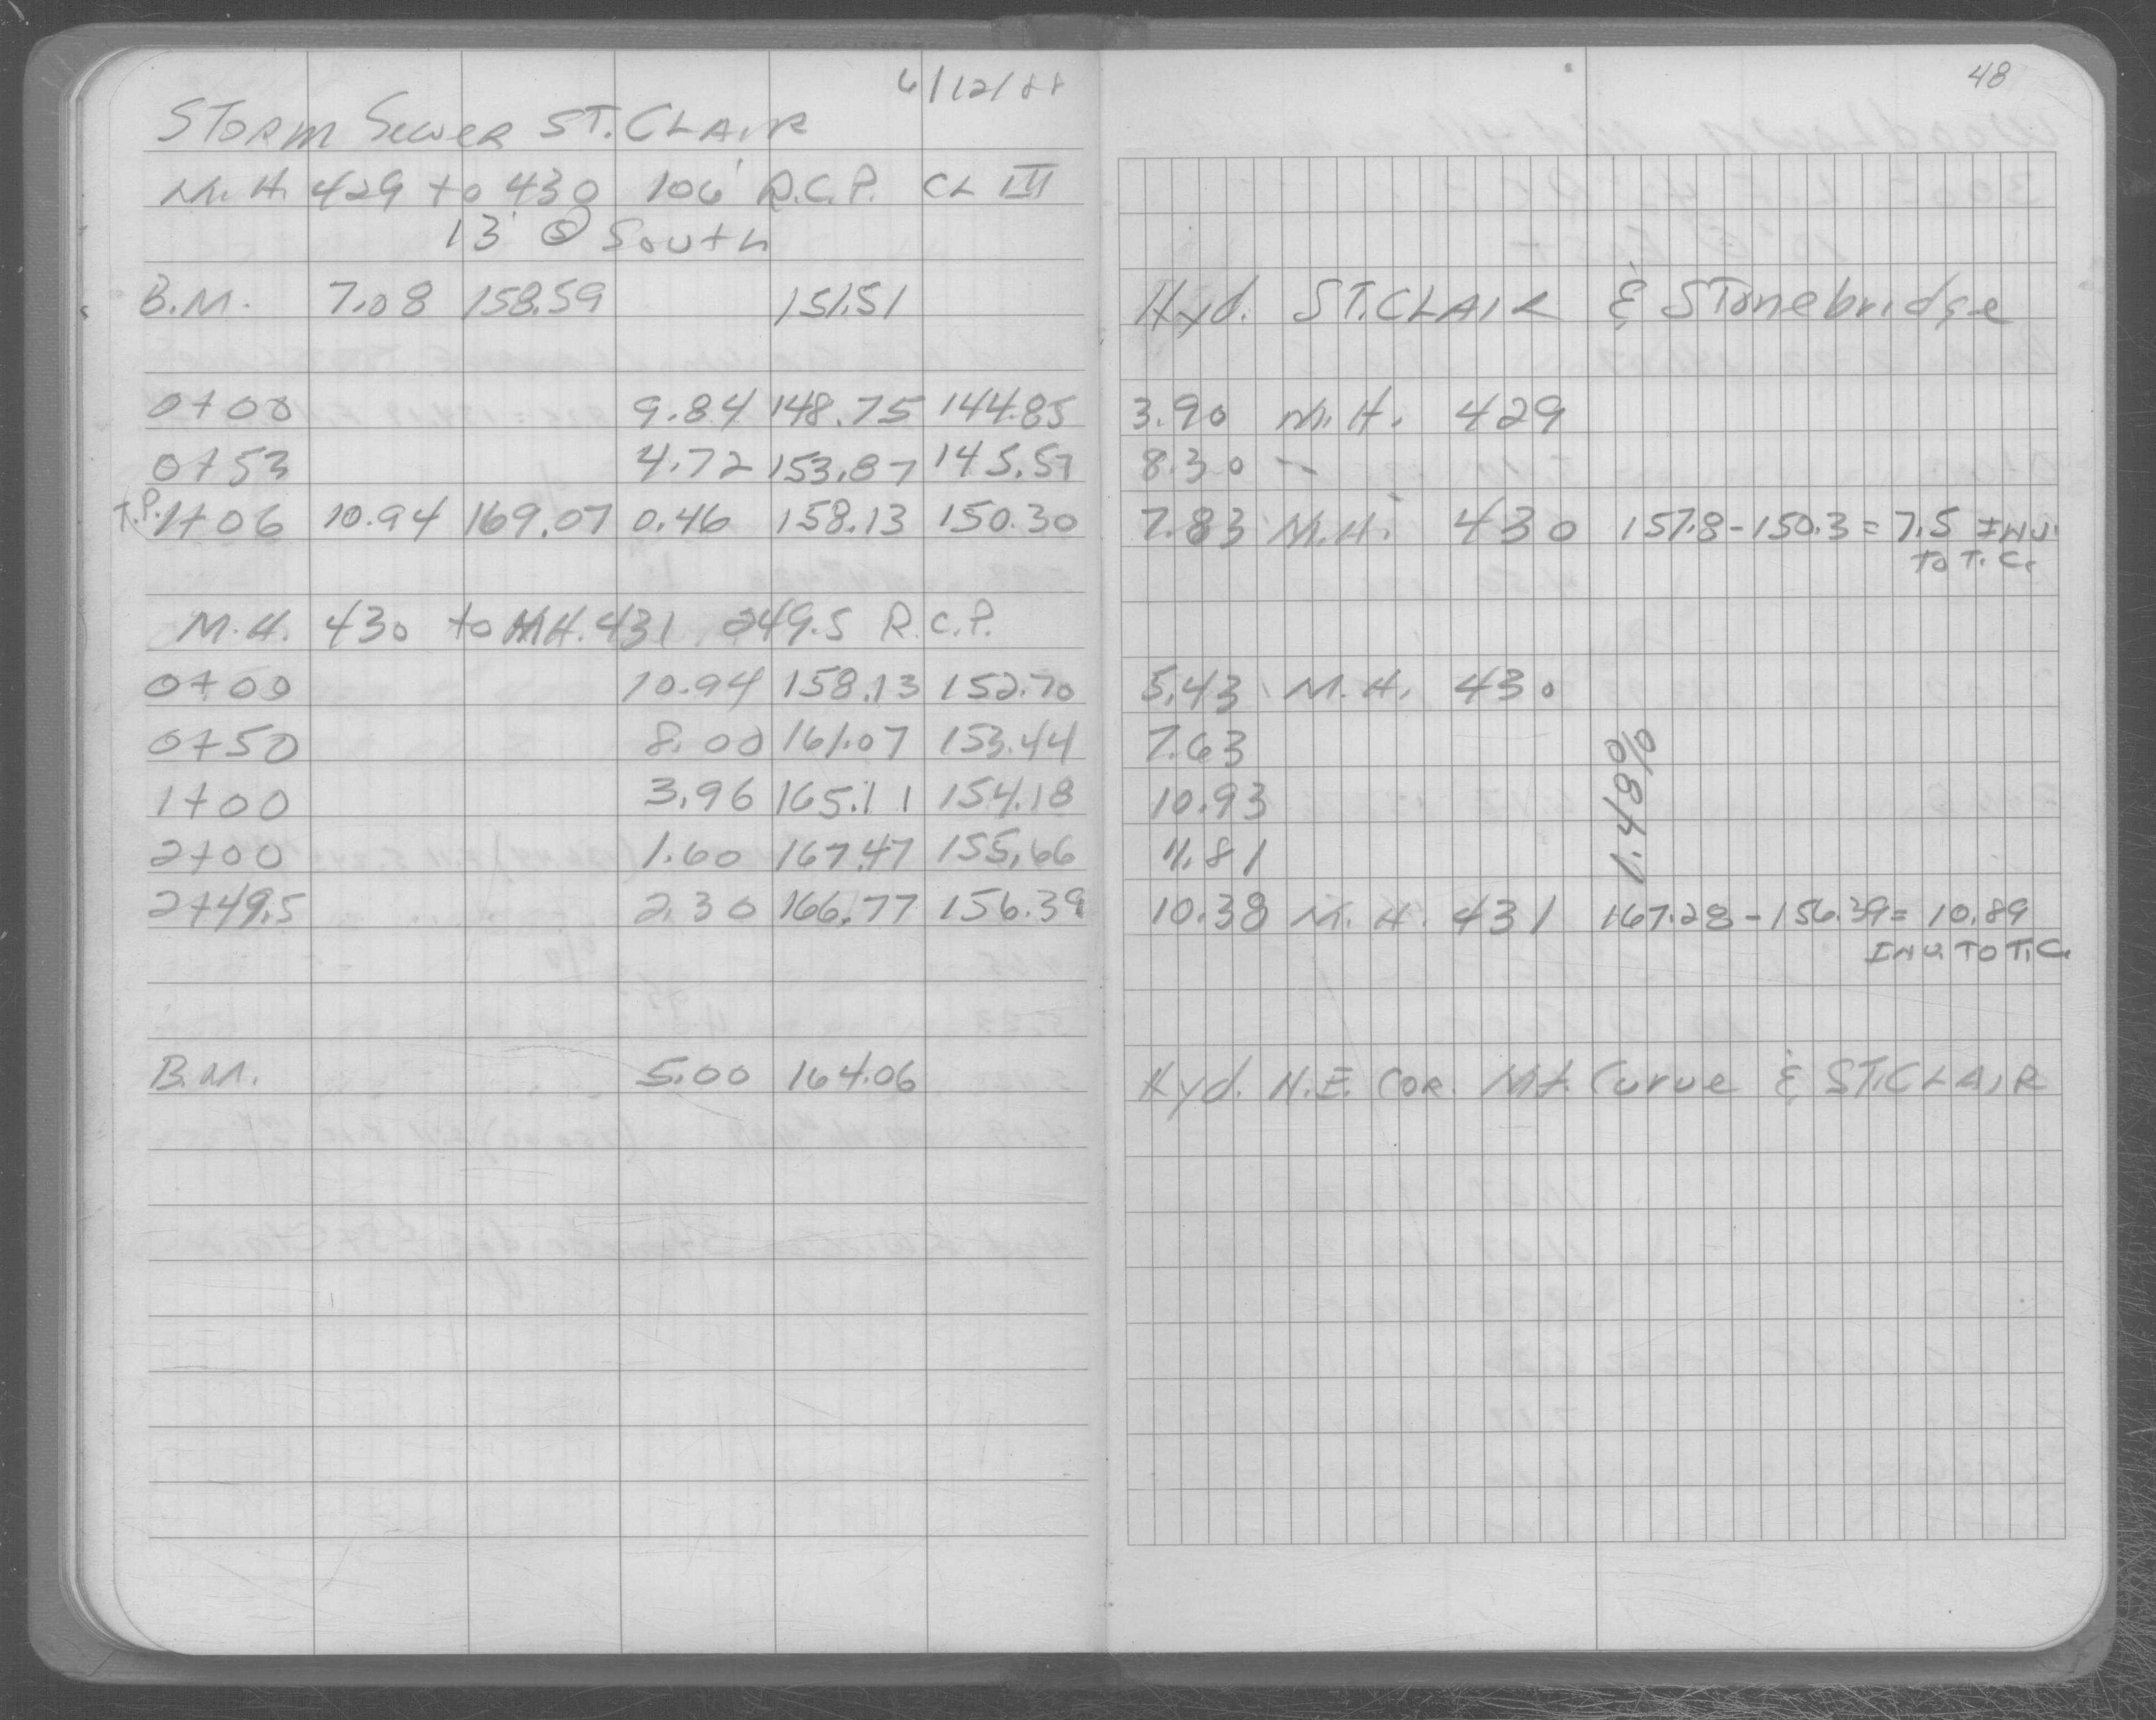 6/12/88
STORM Sewer ST. CLAIR
M.H. 429 to 430 106' R.C.P. CL III
13' @ South
B.M. 7.08 158.59 151.51
0+00 9.84 148.75 144.85
0+53 4.72 153.87 145.57
T.P. 1+06 10.94 169.07 0.46 158.13 150.30
M.H. 430 to M.H. 431 249.5 R.C.P.
0+00 10.94 158.13 152.70
0+50 8.00 161.07 153.44
1+00 3.96 165.11 154.18
2+00 1.60 167.47 155.66
2+49.5 2.30 166.77 156.39
B.M. 5.00 164.06
48
Hyd. ST. CLAIR & Stonebridge
3.90 M.H. 429
8.30 -
7.83 M.H. 430 157.8-150.3=7.5 INV.
TO T.C.
5.43 M.H. 430
7.63
10.93
11.81
1.48%
10.38 M.H. 431 167.28-156.39=10.89
INV. TO T.C.
Hyd. N.E. COR. Mt. Curve & ST. CLAIR